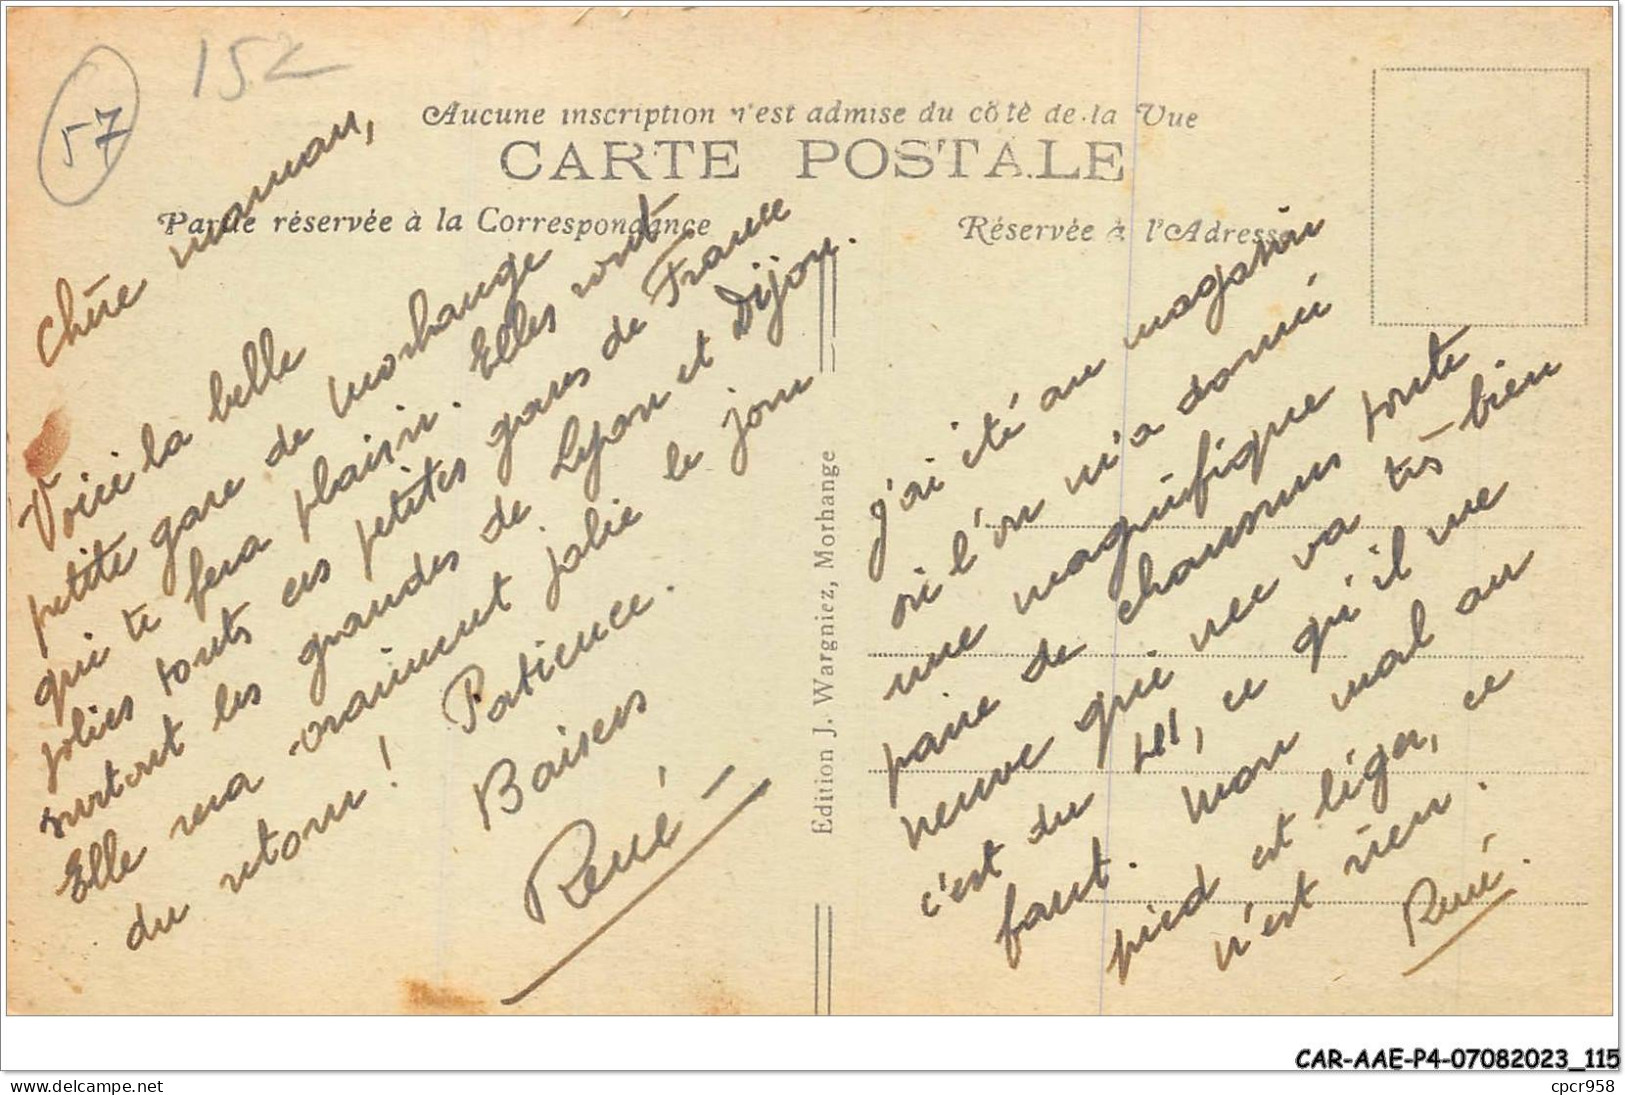 57
152
Aucune inscription n'est admise du côté de la Vue
CARTE POSTALE
Partie réservée à la Correspondance
Réservée à l'Adresse
Chère maman,
Voici la belle
petite gare de Morhange
qui te fera plaisir. Elles sont
jolies touts ces petites gares de France
surtout les grandes de Lyon et Dijon.
Elle sera vraiment jolie le jour
du retour ! Patience.
Baisers
René
Edition J. Wargniez, Morhange
J'ai été au magasin
où l'on m'a donné
une magnifique
paire de chaussures toute
neuve qui me va très bien
c'est du 41, ce qu'il me
faut. Mon mal au
pied est léger, ce
n'est rien.
René.
CAR-AAE-P4-07082023_115
cpcr958